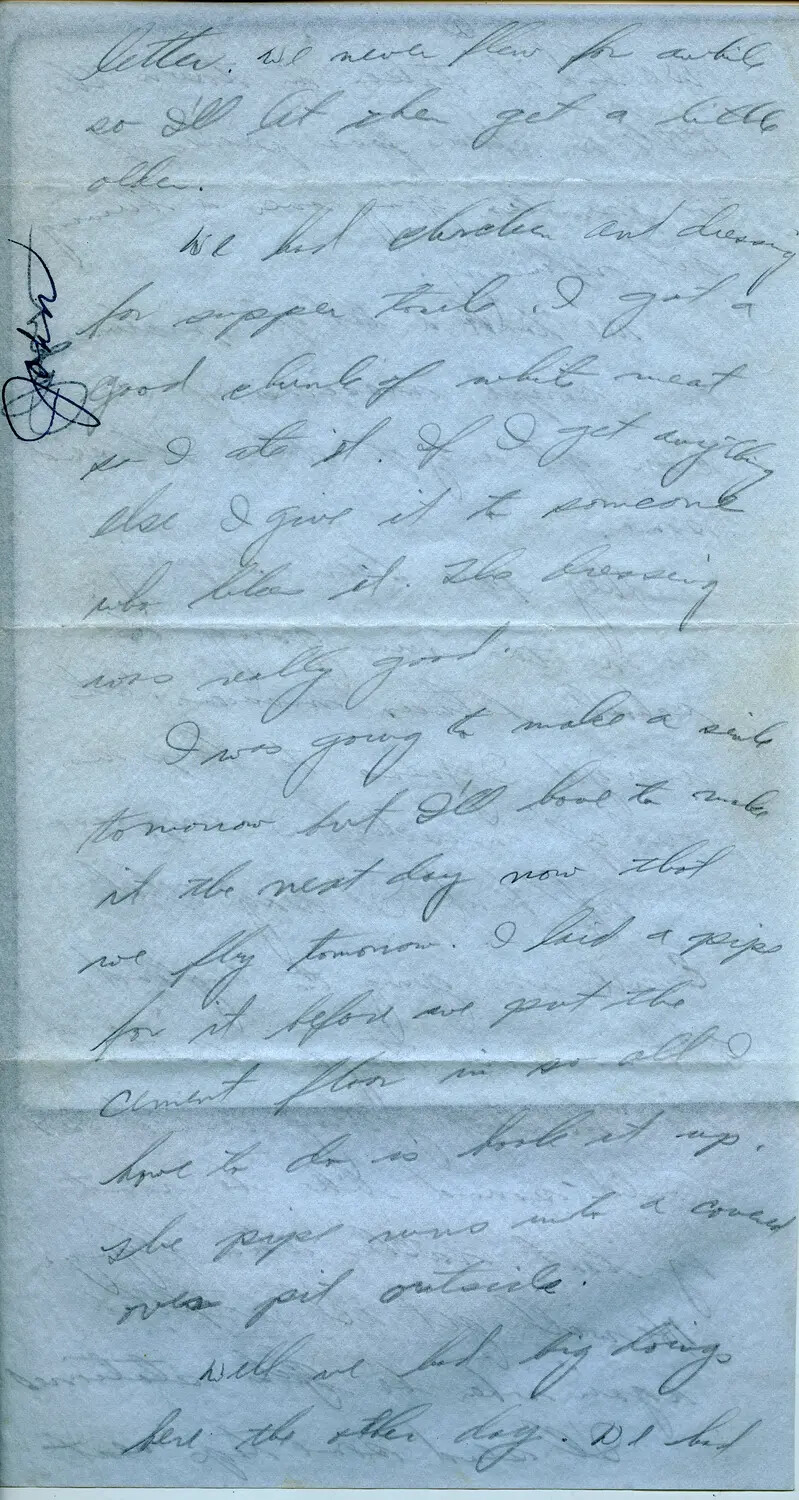 letter. We never flew for awhile
so I'll let them get a little
older.
We had chicken and dressing
for supper tonite. I got a
good chunk of white meat
so I ate it. If I get anything
else I give it to someone
who likes it. The dressing
was really good.
I was going to make a sink
tomorrow but I'll have to make
it the next day now that
we fly tomorrow. I laid a pipe
for it before we put the
cement floor in so all I
have to do is hook it up.
The pipe runs into a covered
over pit outside.
Well we had big doings
here the other day. We had